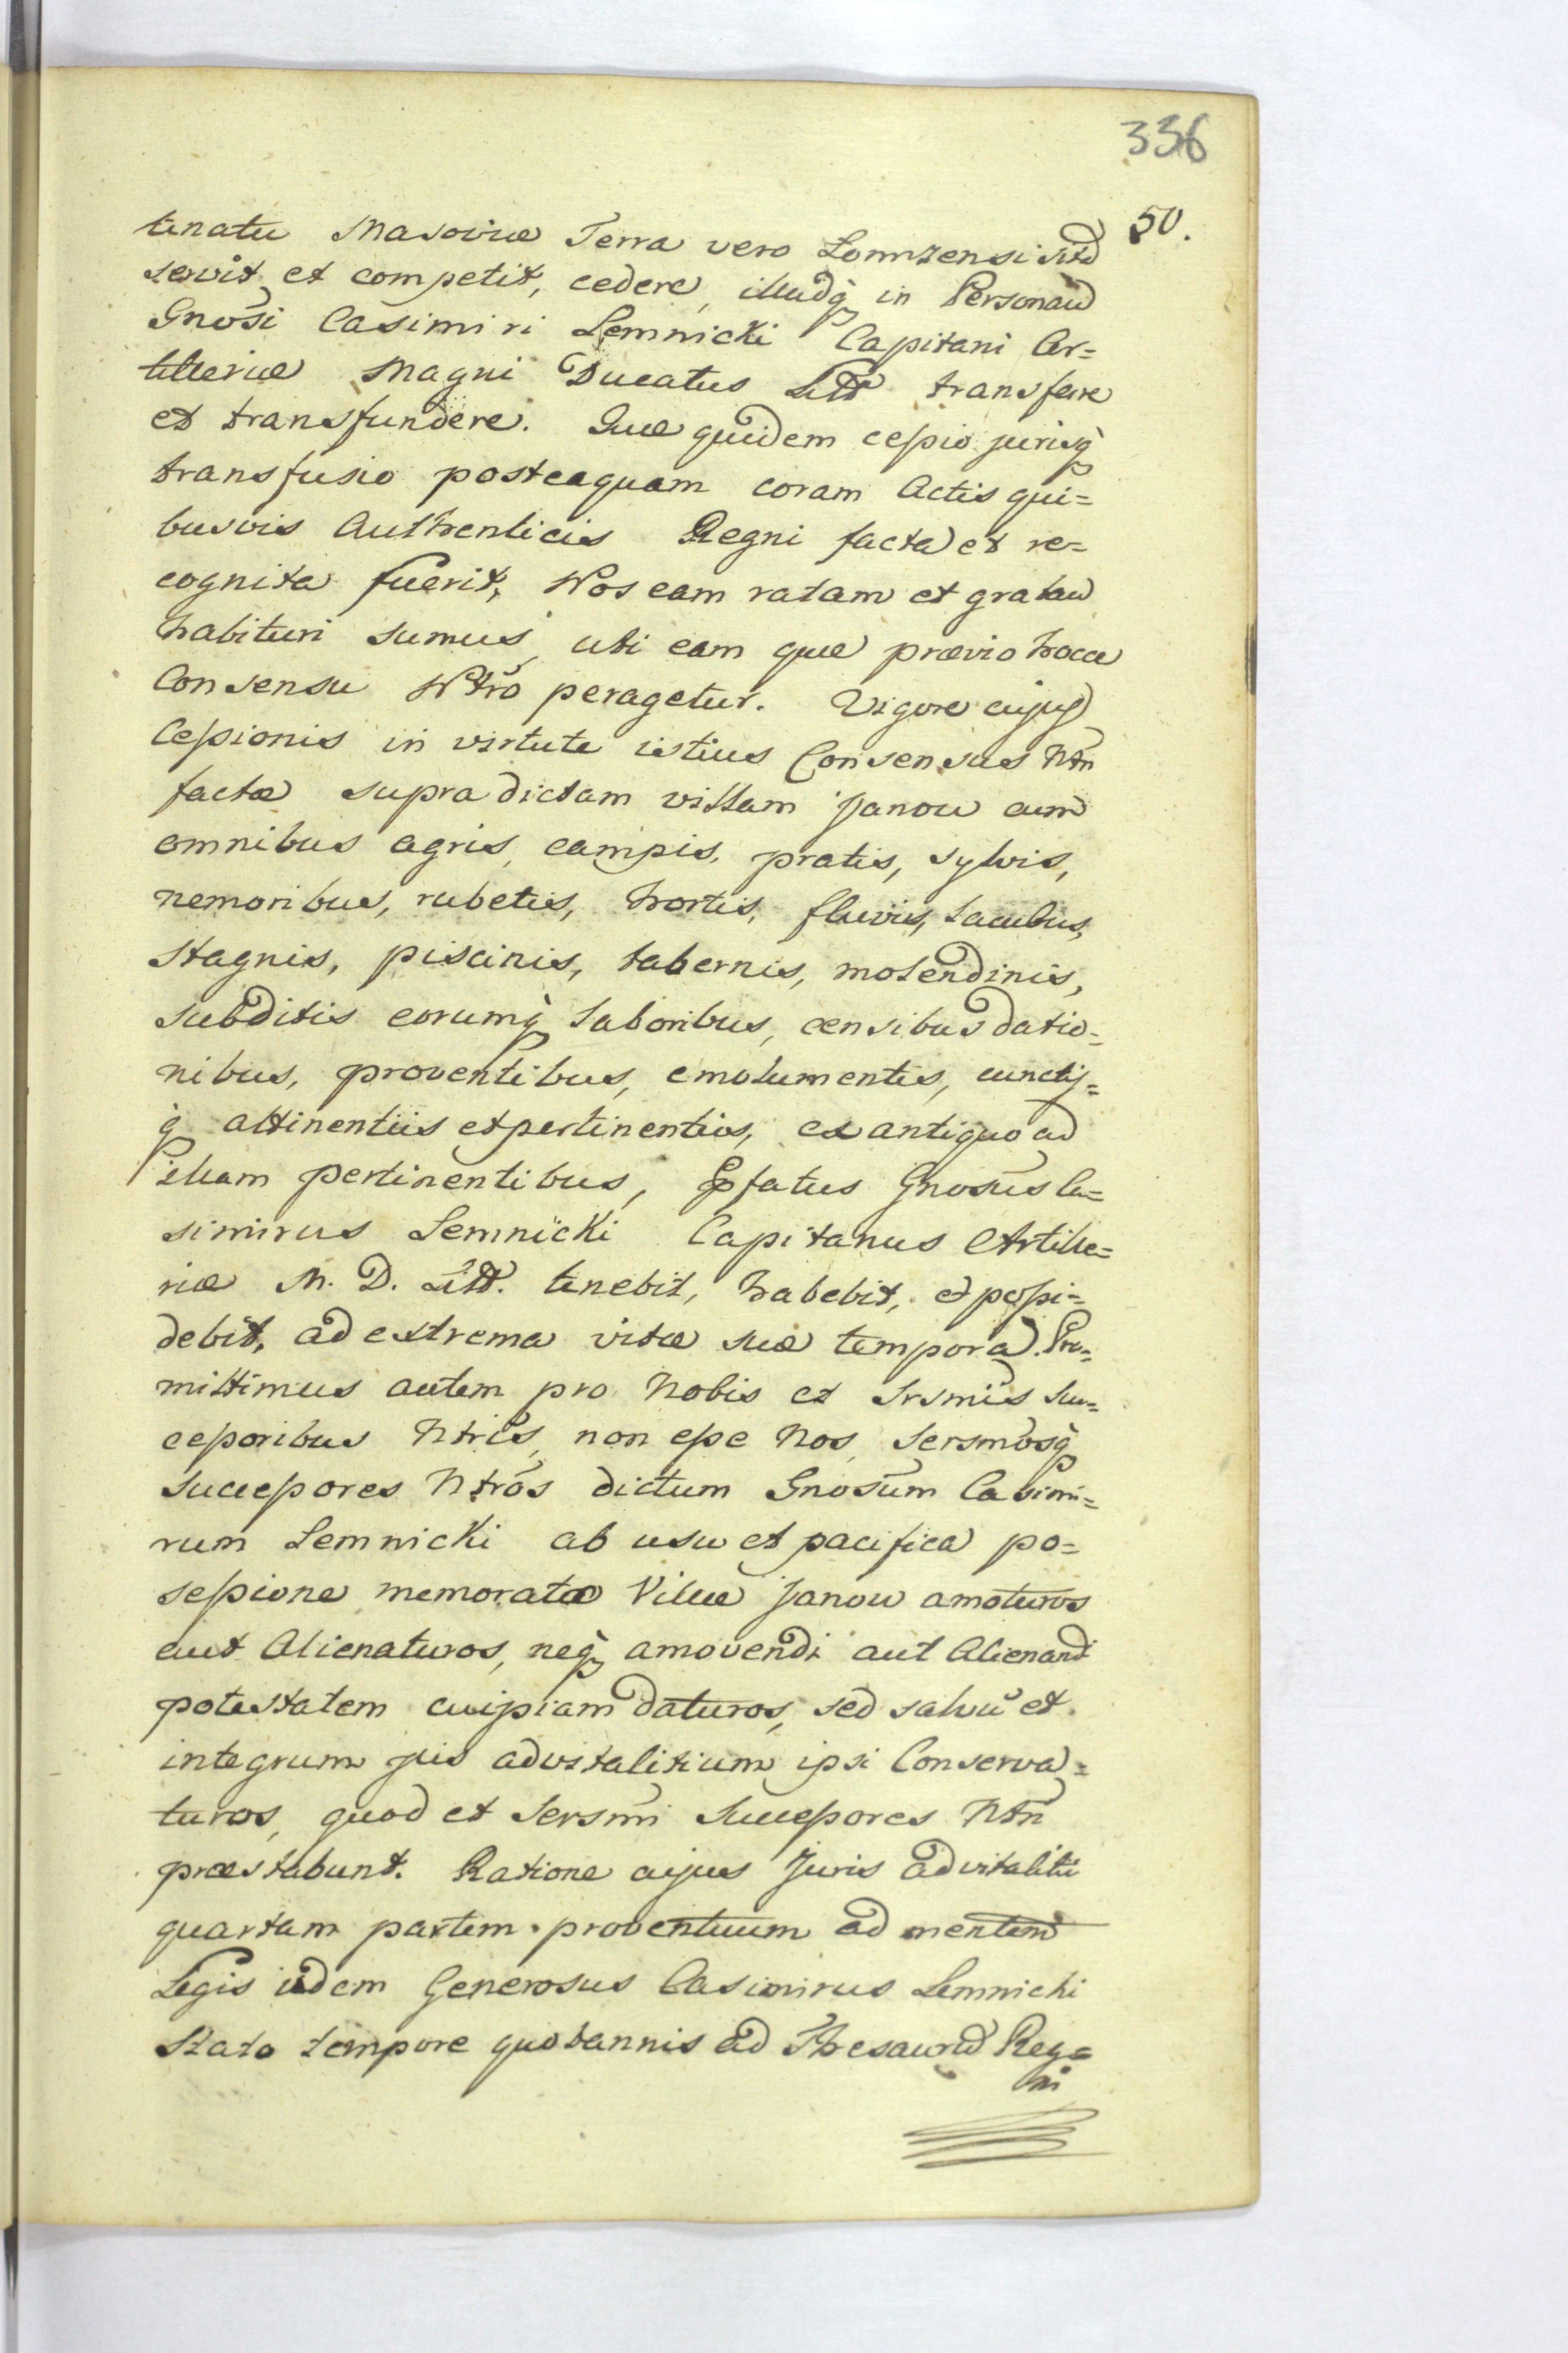 336
50.
tinatu Masoviæ Terra vero Lomzensi sitã
servit et competit, cedere, illudq̀ in Personam̃
Gnosi Casimiri Lemnicki Capitani Ar=
tilleriæ Magni Ducatus Litt transferre
et transfundere. Quæ quidem cessio jurisq̀
transfusio posteaquam coram Actis qui=
busvis Authenticis Regni facta et re=
cognita fuerit, Nos eam ratam et gratam
habituri sumus, uti eam quæ prævio hocce
Consensu Ntrõ peragetur. Vigore cujus
Cessionis in virtute istius Consensus Ntri
factæ supra dictam villam Janow cum
omnibus agris, campis, pratis, sylvis,
nemoribus, rubetis, hortis, fluviis, lacubus,
stagnis, piscinis, tabernis, molendinis,
subditis eorumq̀ laboribus, censibus datio=
nibus, proventibus, emolumentis, cunctis=
q̀ attinentiis et pertinentiis, ex antiquo ad
illam pertinentibus, Pfatus Gnosus Ca=
simirus Lemnicki Capitanus Artille=
riæ M. D. Litt. tenebit, habebit, et possi=
debit, ad extrema vitæ suæ tempora. Pro=
mittimus autem pro Nobis et Srsmis Suc=
cessoribus Ntris, non esse Nos, Sersmosq̀
Successores Ntros dictum Gnosum Casimi=
rum Lemnicki ab usu et pacifica po=
sessione memoratæ Villæ Janow amoturos
aut Alienaturos, neq̀ amovendi aut Alienandi
potestatem cuipiam daturos, sed salvũ et
integrum jus advitalitium ipsi Conserva=
turos, quod et Sersmi Successores Ntri
præstabunt. Ratione cujus Juris advitalitii
quartam partem proventuum ad mentem
Legis idem Generosus Casimirus Lemnicki
Stato tempore quotannis ad Thesaurũ Reg=
ni